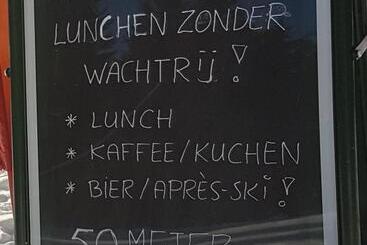 LUNCHEN ZONDER
WACHTRIJ!
* LUNCH
* KAFFEE/KUCHEN
* BIER/APRÈS-SKI!
50 METER